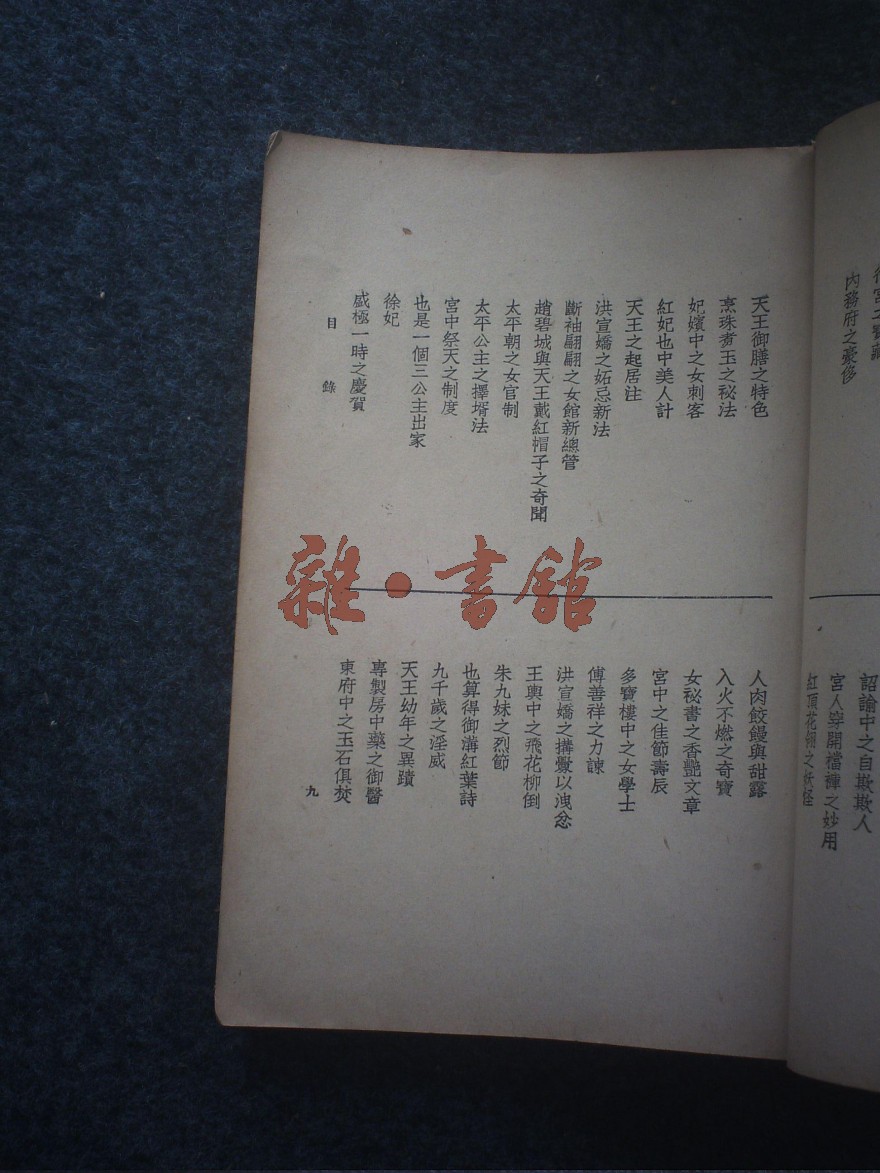 內務府之豪侈
詔諭中之自欺欺人
宮人穿開襠褲之妙用
紅頂花翎之妖怪
天王御膳之特色
烹珠煑玉之祕法
妃嬪中之女刺客
紅妃也中美人計
天王之起居注
洪宣嬌之妬忌新法
斷袖翩翩之女館新總管
趙碧城與天王戴紅帽子之奇聞
太平朝之女官制
太平公主之擇壻法
宮中祭天之制度
也是一個三公主出家
徐妃
盛極一時之慶賀
人肉餃饅與甜露
入火不燃之奇寶
女祕書之香艷文章
宮中之佳節壽辰
多寶樓中之女學士
傅善祥之力諫
洪宣嬌之搆釁以洩忿
王輿中之飛花柳倒
朱九妹之烈節
也算得御溝紅葉詩
九千歲之淫威
天王幼年之異蹟
專製房中藥之御醫
東府中之玉石俱焚
目錄
九
雜·書館